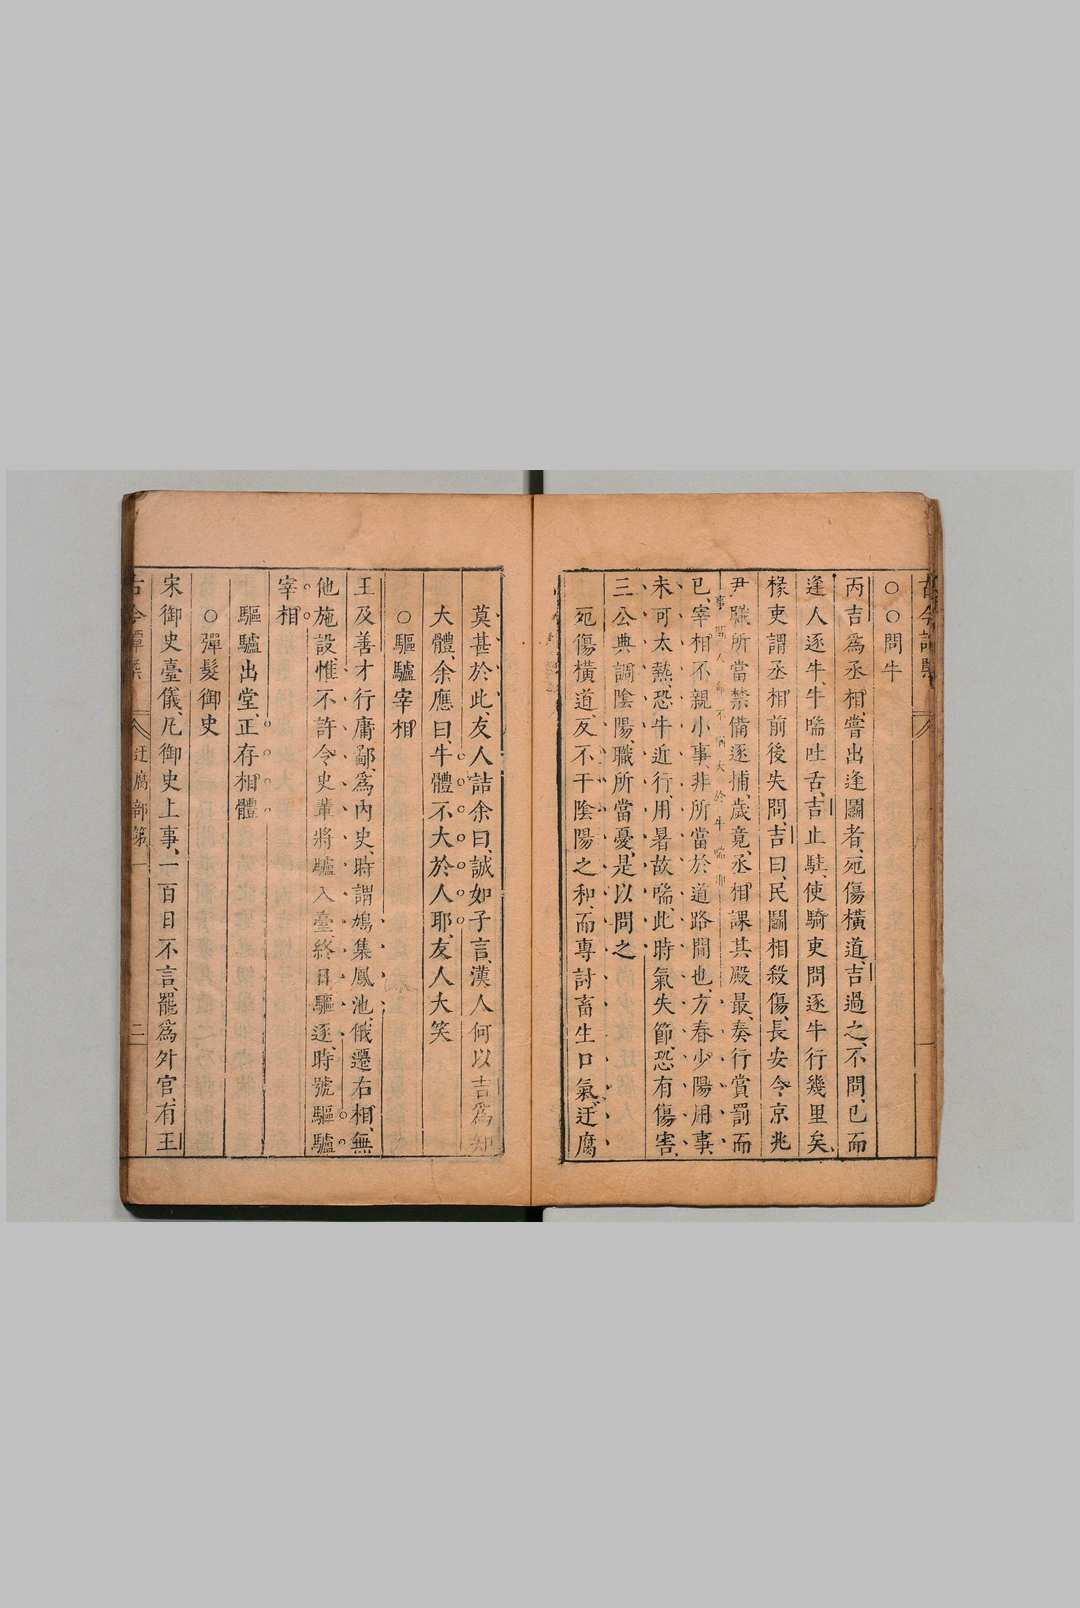 ○○問牛
丙吉爲丞相嘗出逢鬭者、死傷橫道、吉過之、不問、已而
逢人逐牛、牛喘吐舌、吉止駐、使騎吏問逐牛行幾里矣、
掾吏謂丞相前後失問、吉曰、民鬭相殺傷、長安令京兆
尹職所當禁備逐捕、歲竟、丞相課其殿最、奏行賞罰而
已、宰相不親小事、非所當於道路問也、方春少陽用事、
未可太熱、恐牛近行、用暑故喘、此時氣失節、恐有傷害、
三公典調陰陽、職所當憂、是以問之
死傷橫道、反不干陰陽之和、而專討畜生口氣、迂腐
莫甚於此、友人詰余曰、誠如子言、漢人何以吉爲知
大體、余應曰、牛體不大於人耶、友人大笑
○驅驢宰相
王及善才行庸鄙、爲內史、時謂鳩集鳳池、俄遷右相、無
他施設、惟不許令史輩將驢入臺、終日驅逐、時號驅驢
宰相
驅驢出堂、正存相體
○彈髮御史
宋御史臺儀、凡御史上事、一百日不言、罷爲外官、有王
迂腐部第一
二